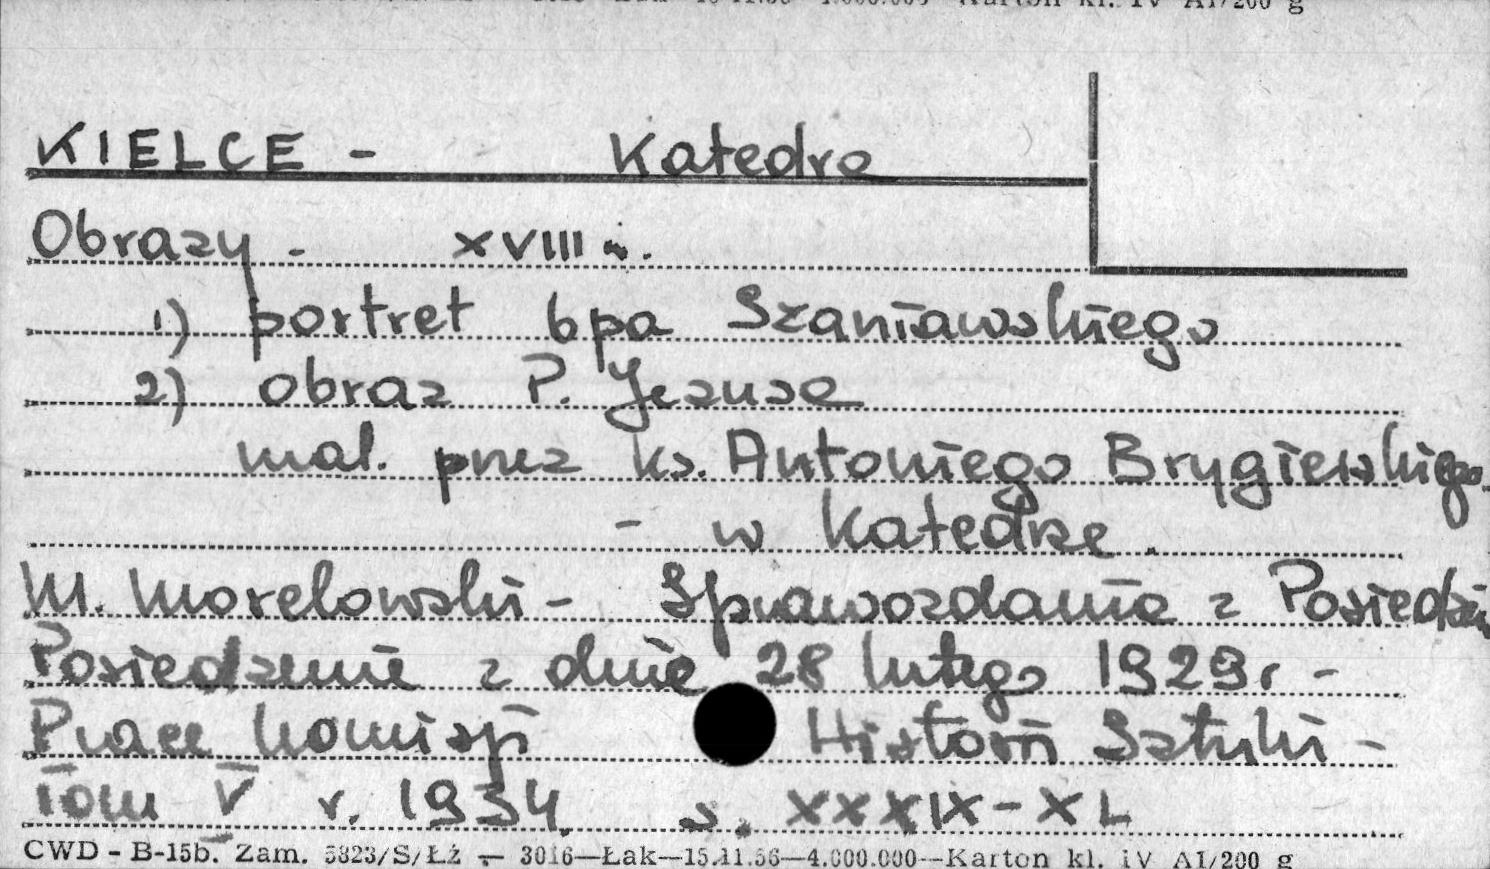 Karton kl. IV A1/200 g
KIELCE - Katedra
Obrazy - XVIII w.
1) portret bpa Szaniawskiego
2) obraz P. Jezusa
mal. przez ks. Antoniego Brygierskiego
- w Katedrze.
M. Morelowski - Sprawozdania z Posiedzeń
Posiedzenie z dnia 28 lutego 1929 r -
Prace Komisji Historii Sztuki -
Tom V r. 1934. s. XXXIX-XL
CWD - B-15b. Zam. 5823/S/ŁŻ - 3016—Łak—15.11.56—4.000.000—Karton kl. IV A1/200 g